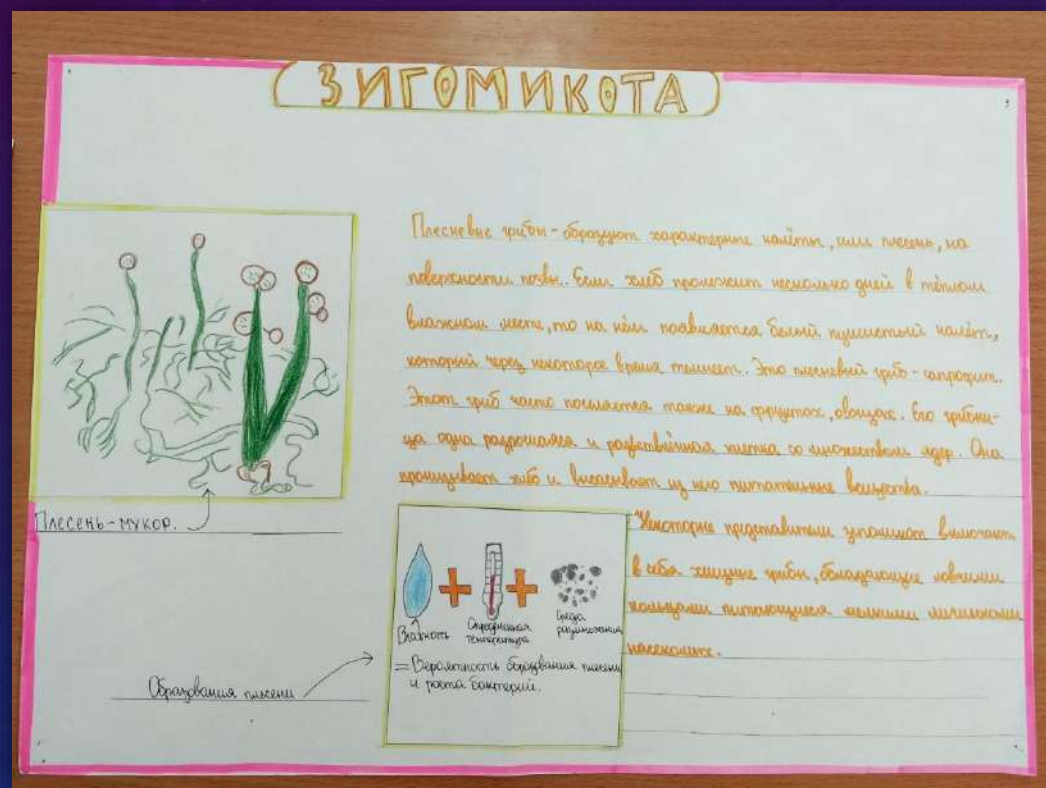 ЗИГОМИКОТА
Плесневые грибы - образуют характерные налёты, или плесень, на
поверхности почвы. Если хлеб пролежит несколько дней в тёплом
влажном месте, то на нём появляется белый пушистый налёт,
который через некоторое время темнеет. Это плесневый гриб-сапрофит.
Этот гриб часто поселяется также на фруктах, овощах. Его грибни-
ца одна разросшаяся и разветвлённая клетка со множеством ядер. Она
пронизывает хлеб и высасывает из него питательные вещества.
Некоторые представители зигомикот включают
в себя хищные грибы, обладающие ловчими
кольцами питающиеся мелкими личинками
насекомых.
Плесень-мукор.
Влажность
Определенная температура
Среда размножения
= Вероятность образования плесени
и роста бактерий.
Образования плесени